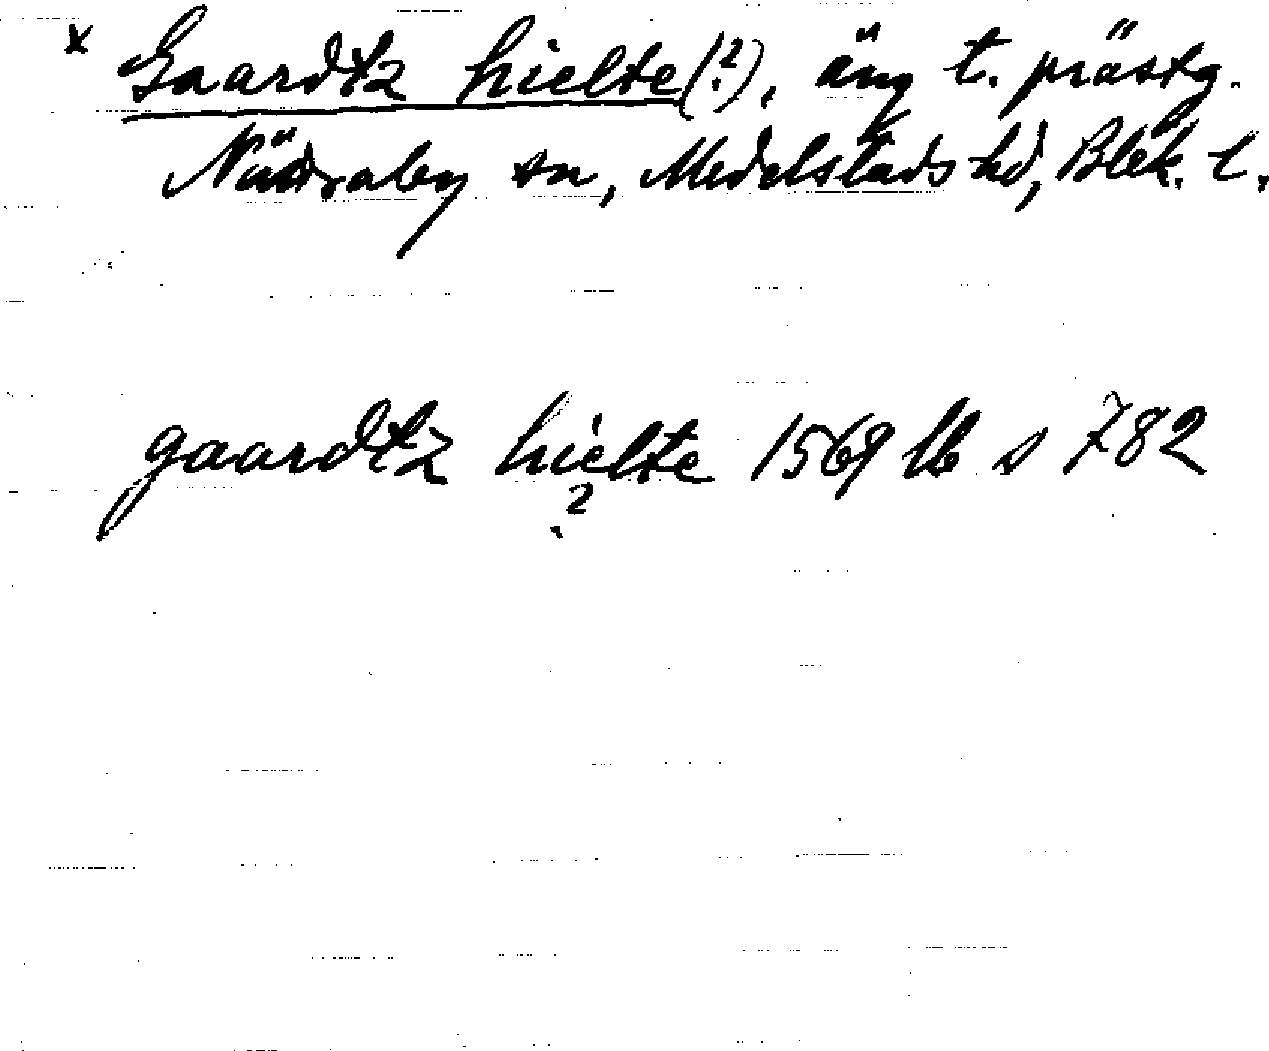 x Gaardtz hielte(?), äng t. prästg.
Nättraby sn, Medelstads hd, Blek. l.
gaardtz hielte 1569 lb s 782
?